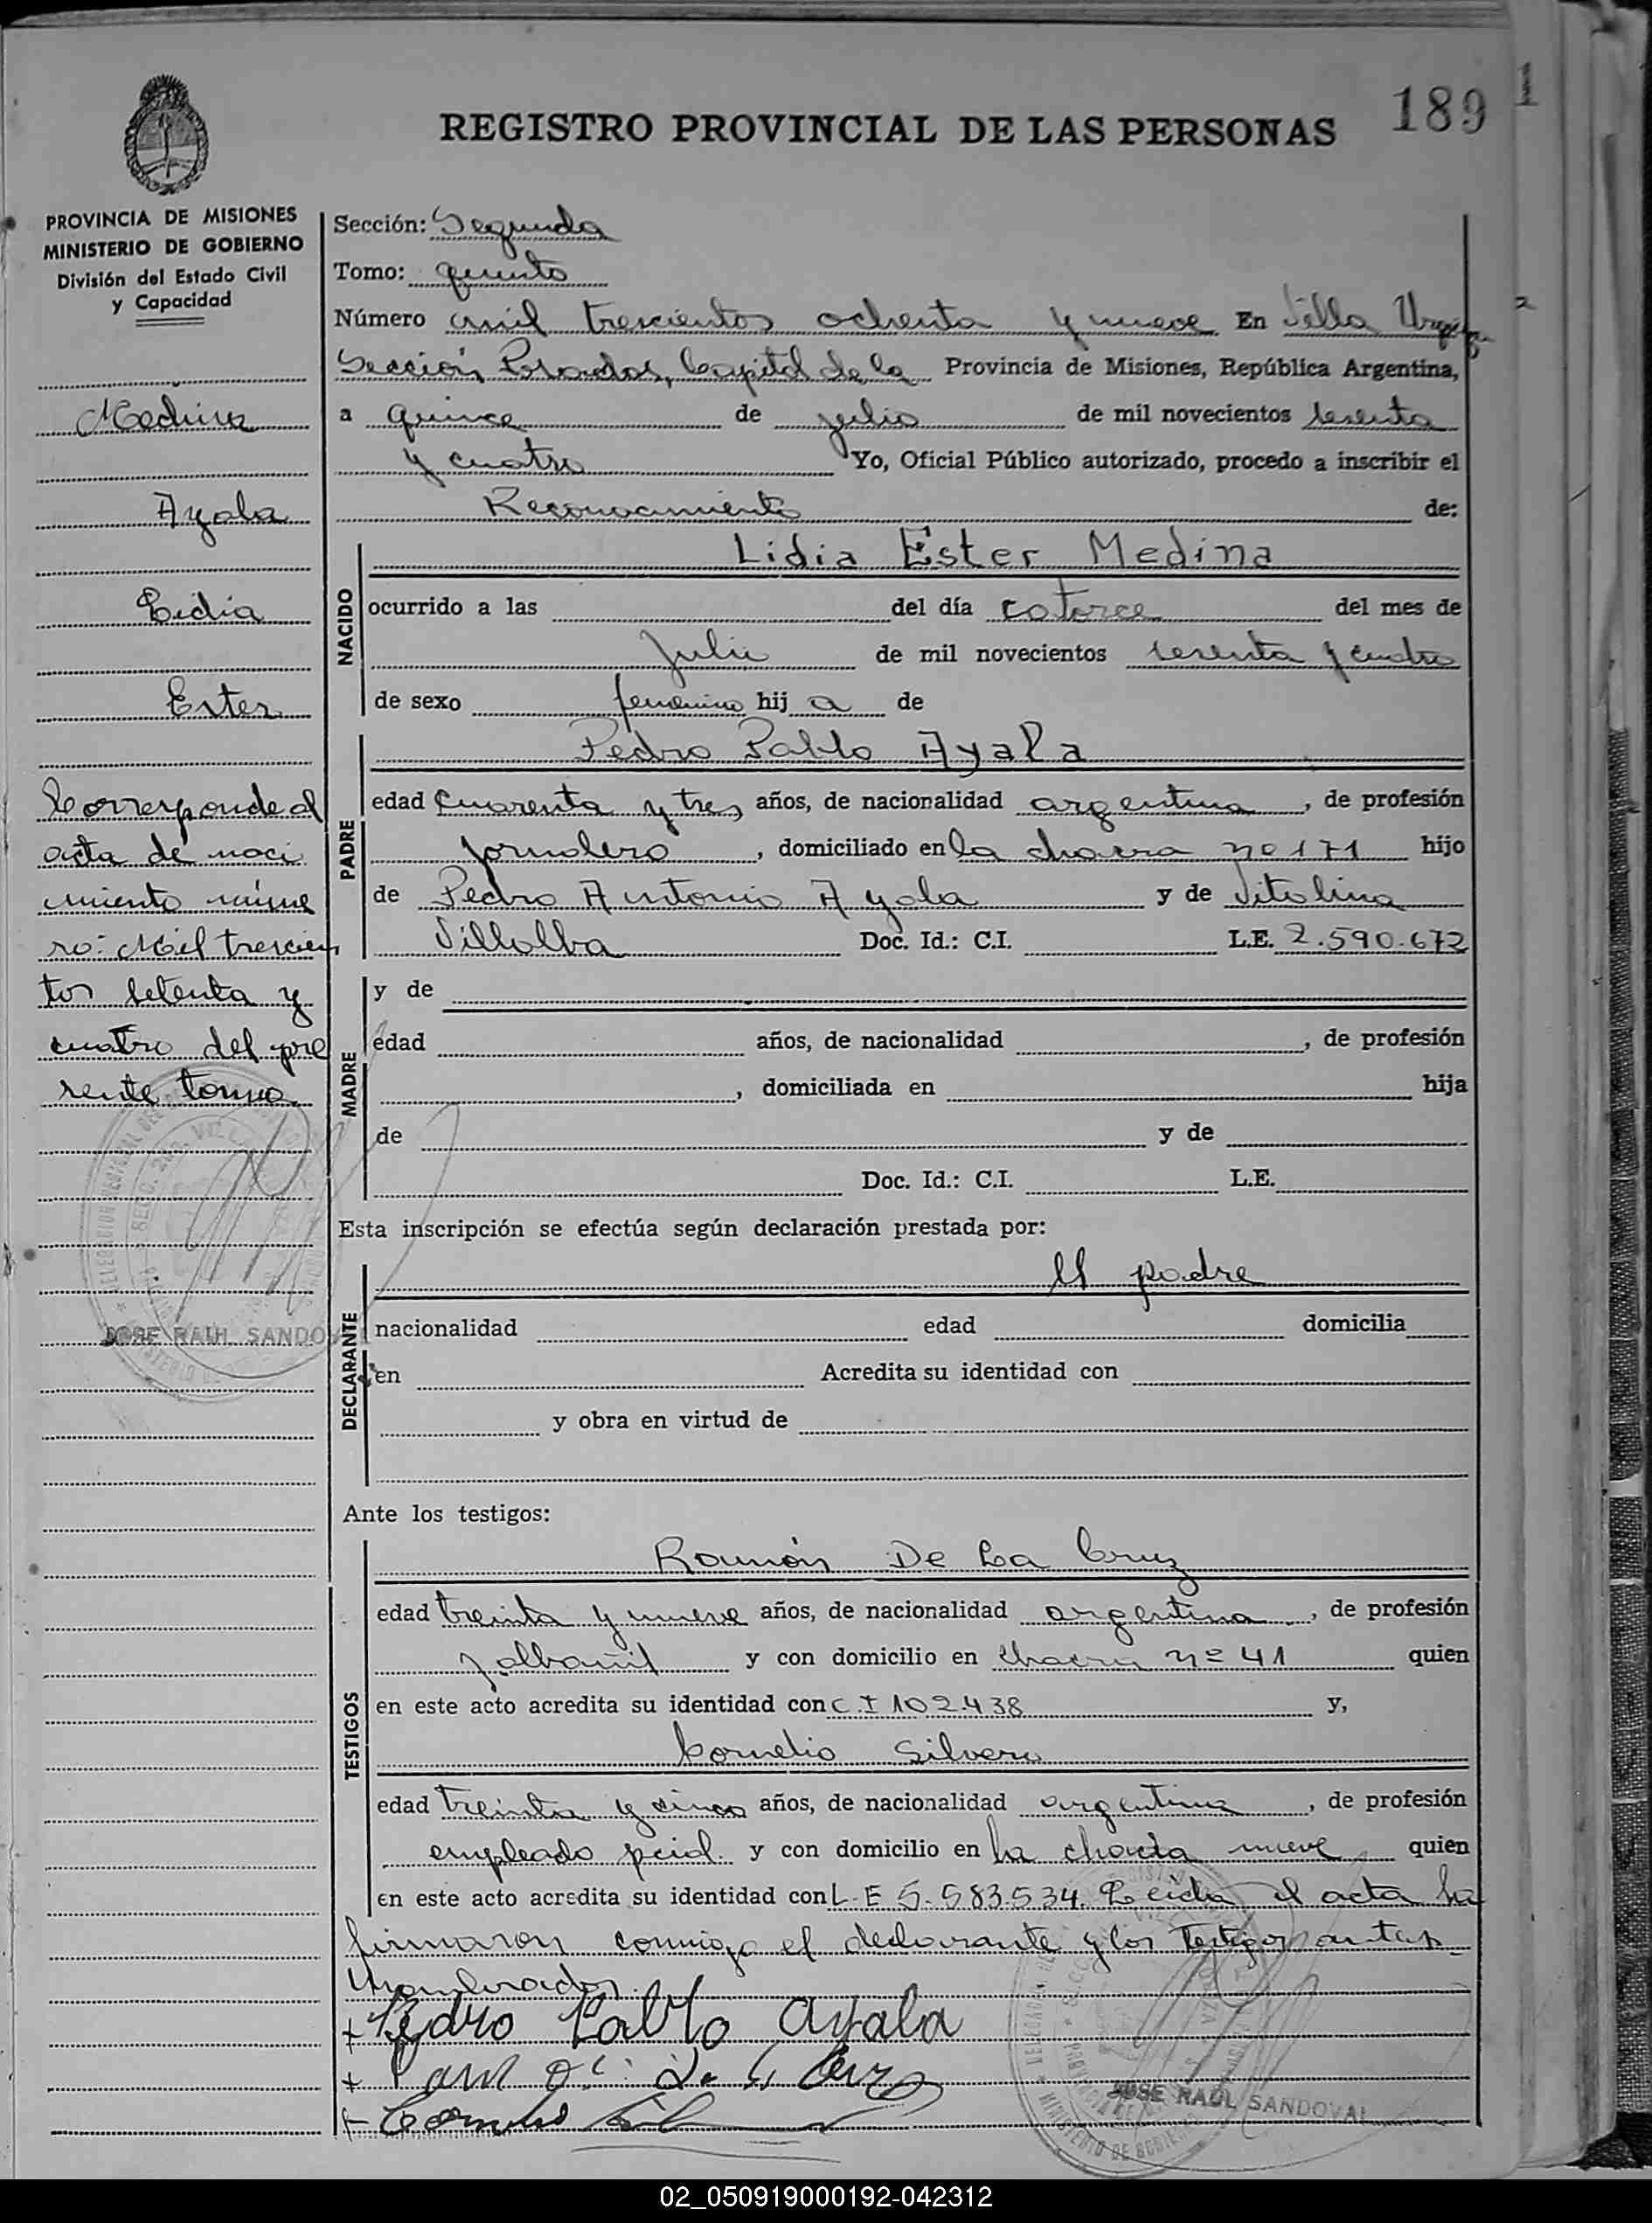 189
REGISTRO PROVINCIAL DE LAS PERSONAS
PROVINCIA DE MISIONES
MINISTERIO DE GOBIERNO
División del Estado Civil
y Capacidad
Medina
Ayala
Lidia
Ester
Corresponde al
acta de naci
miento núme
ro: Mil trescien
tos setenta y
cuatro del pre
sente tomo
JOSE RAUL SANDO
Sección: Segunda
Tomo: quinto
Número mil trescientos ochenta y nueve En Villa Urquiza
Sección Posadas, Capital de la Provincia de Misiones, República Argentina,
a quince de julio de mil novecientos sesenta
y cuatro Yo, Oficial Público autorizado, procedo a inscribir el
Reconocimiento de:
NACIDO
Lidia Ester Medina
ocurrido a las del día catorce del mes de
Julio de mil novecientos sesenta y cuatro
de sexo femenino hij a de
PADRE
Pedro Pablo Ayala
edad Cuarenta y tres años, de nacionalidad argentina, de profesión
jornalero, domiciliado en la chacra nº 171 hijo
de Pedro Antonio Ayala y de Vitolina
Villalba Doc. Id.: C.I. L.E. 2.590.672
MADRE
y de
edad años, de nacionalidad , de profesión
, domiciliada en hija
de y de
Doc. Id.: C.I. L.E.
Esta inscripción se efectúa según declaración prestada por:
DECLARANTE
El padre
nacionalidad edad domicilia
en Acredita su identidad con
y obra en virtud de
Ante los testigos:
TESTIGOS
Ramón De La Cruz
edad treinta y nueve años, de nacionalidad argentina, de profesión
albañil y con domicilio en chacra nº 41 quien
en este acto acredita su identidad con C.I 102.438 y,
Cornelio Silvero
edad treinta y cinco años, de nacionalidad argentina, de profesión
empleado pcial. y con domicilio en la chacra nueve quien
en este acto acredita su identidad con L.E 5.583.534. Leida el acta la
firmaron conmigo el declarante y los testigos antes
nombrados.
+ Pedro Pablo Ayala
JOSE RAUL SANDOVAL
02_050919000192-042312